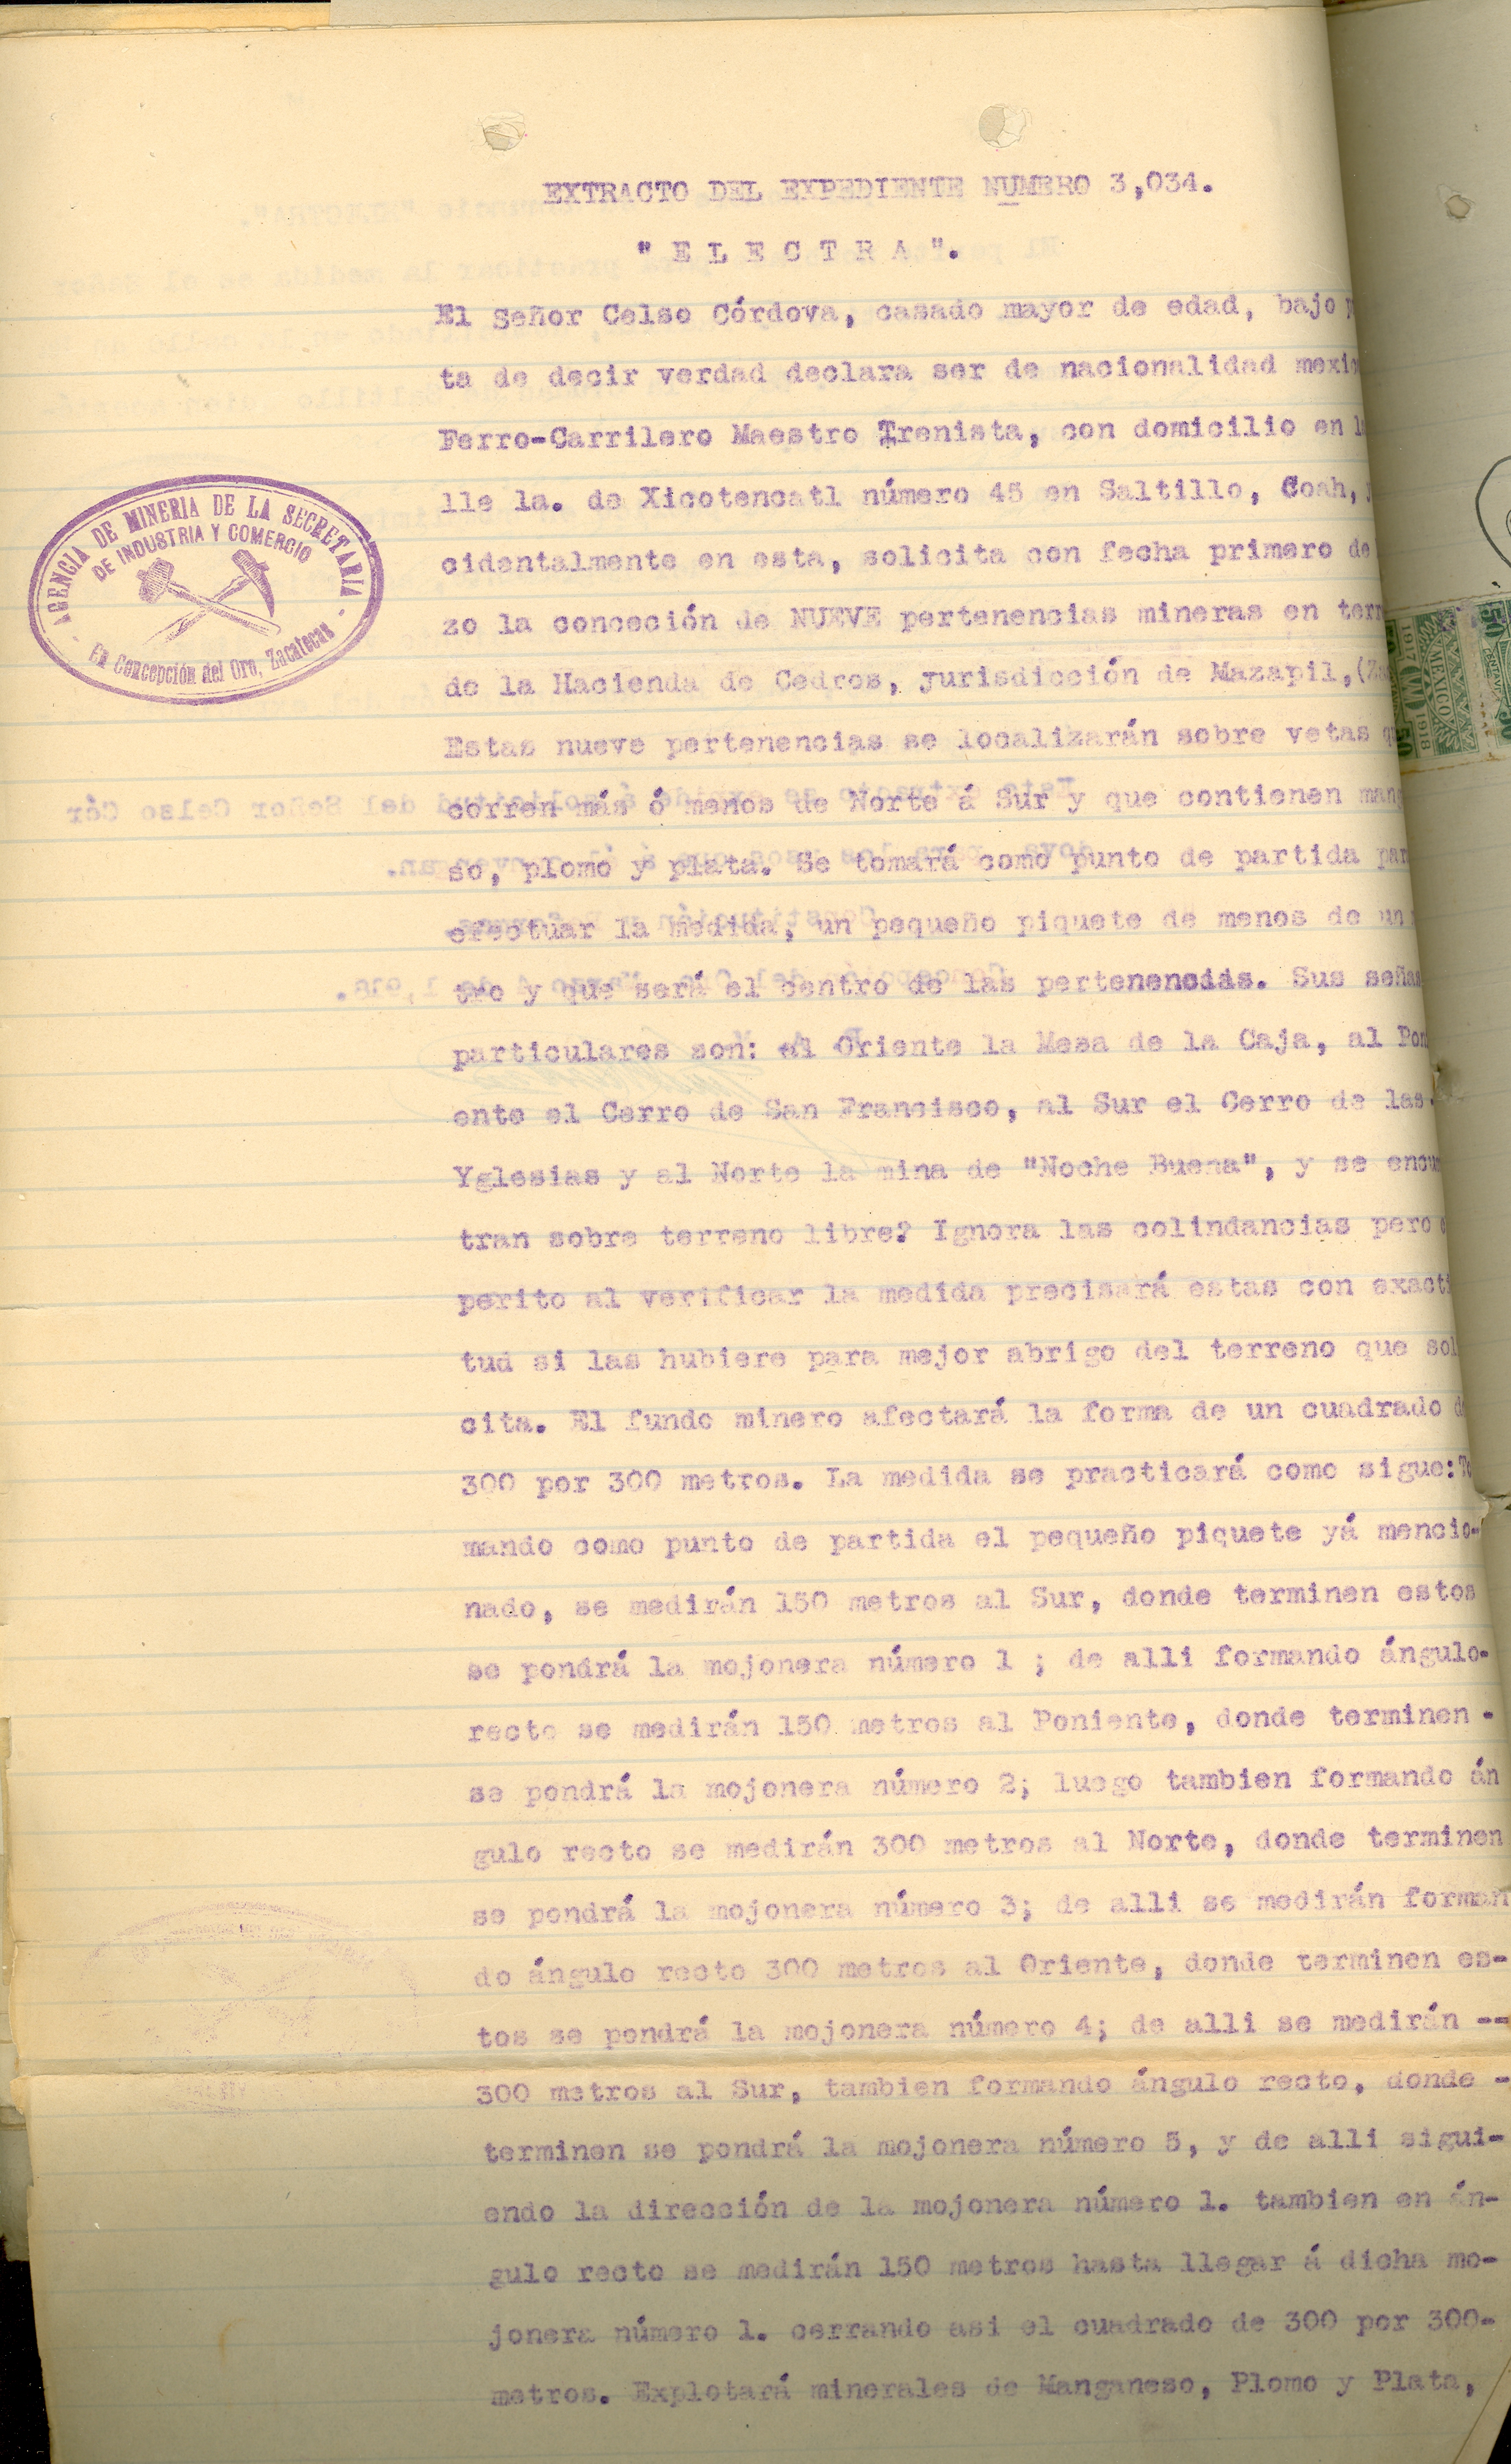 EXTRACTO DEL EXPEDIENTE NUMERO 3,034.
" E L E C T R A ".
El Señor Celso Córdova, casado mayor de edad, bajo
ta de decir verdad declara ser de nacionalidad mexic
Ferro-Carrilero Maestro Trenista, con domicilio en l
lle la. de Xicotencatl número 45 en Saltillo, Coah,
cidentalmente en esta, solicita con fecha primero de
zo la conceción de NUEVE pertenencias mineras en terr
de la Hacienda de Cedros, jurisdicción de Mazapil,(Za
Estas nueve pertenencias se localizarán sobre vetas q
corren más ó menos de Norte á Sur y que contienen mang
so, plomo y plata. Se tomará como punto de partida par
efectuar la medida, un pequeño piquete de menos de un
tro y que será el centro de las pertenencias. Sus señas
particulares son: al Oriente la Mesa de la Caja, al Pon
ente el Cerro de San Francisco, al Sur el Cerro de las
Yglesias y al Norte la mina de "Noche Buena", y se encu
tran sobre terreno libre? Ignora las colindancias pero
perito al verificar la medida precisará estas con exacti
tud si las hubiere para mejor abrigo del terreno que sol
cita. El fundo minero afectará la forma de un cuadrado d
300 por 300 metros. La medida se practicará como sigue:To
mando como punto de partida el pequeño piquete yá mencio-
nado, se medirán 150 metros al Sur, donde terminen estos
se pondrá la mojonera número 1 ; de alli formando ángulo-
recto se medirán 150 metros al Poniente, donde terminen -
se pondrá la mojonera número 2; luego tambien formando án
gulo recto se medirán 300 metros al Norte, donde terminen
se pondrá la mojonera número 3; de alli se medirán forman
do ángulo recto 300 metros al Oriente, donde terminen es-
tos se pondrá la mojonera número 4; de alli se medirán --
300 metros al Sur, tambien formando ángulo recto, donde -
terminen se pondrá la mojonera número 5, y de alli sigui-
endo la dirección de la mojonera número 1. tambien en án-
gulo recto se medirán 150 metros hasta llegar á dicha mo-
jonera número 1. cerrando asi el cuadrado de 300 por 300-
metros. Explotará minerales de Manganeso, Plomo y Plata,
AGENCIA DE MINERIA DE LA SECRETARIA
DE INDUSTRIA Y COMERCIO
En Concepción del Oro, Zacatecas
1917
1918
MEXICO
50
50